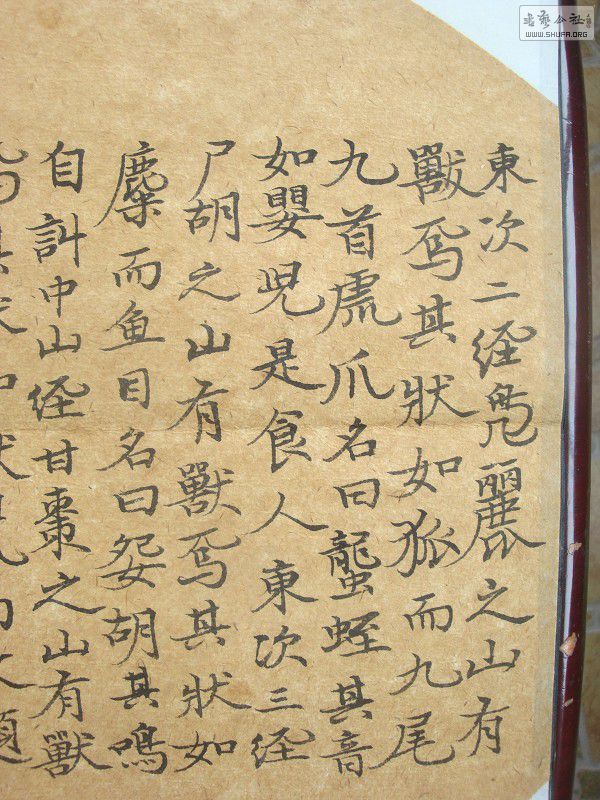 東次二经凫麗之山有
獸焉其狀如狐而九尾
九首虎爪名曰蠪蛭其音
如嬰児是食人東次三经
尸胡之山有獸焉其狀如
麋而鱼目名曰妴胡其鳴
自訆中山经甘棗之山有獸
WWW.SHUFA.ORG